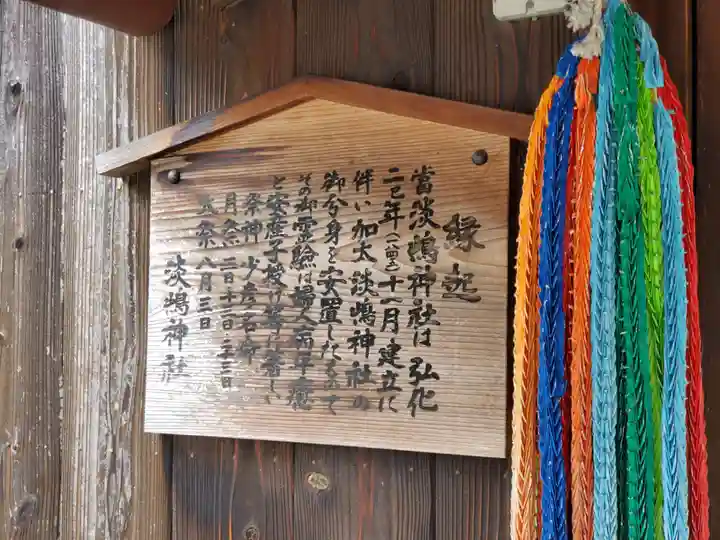 縁起
當淡嶋神社は弘化
二巳年(一八四五)十一月建立に
伴い加太淡嶋神社の
御分身を安置したもので
その御霊驗は婦人病平癒
と安産子授け等に著しい
祭神少彦名命
月祭三日十三日二十三日
大祭八月三日
淡嶋神社